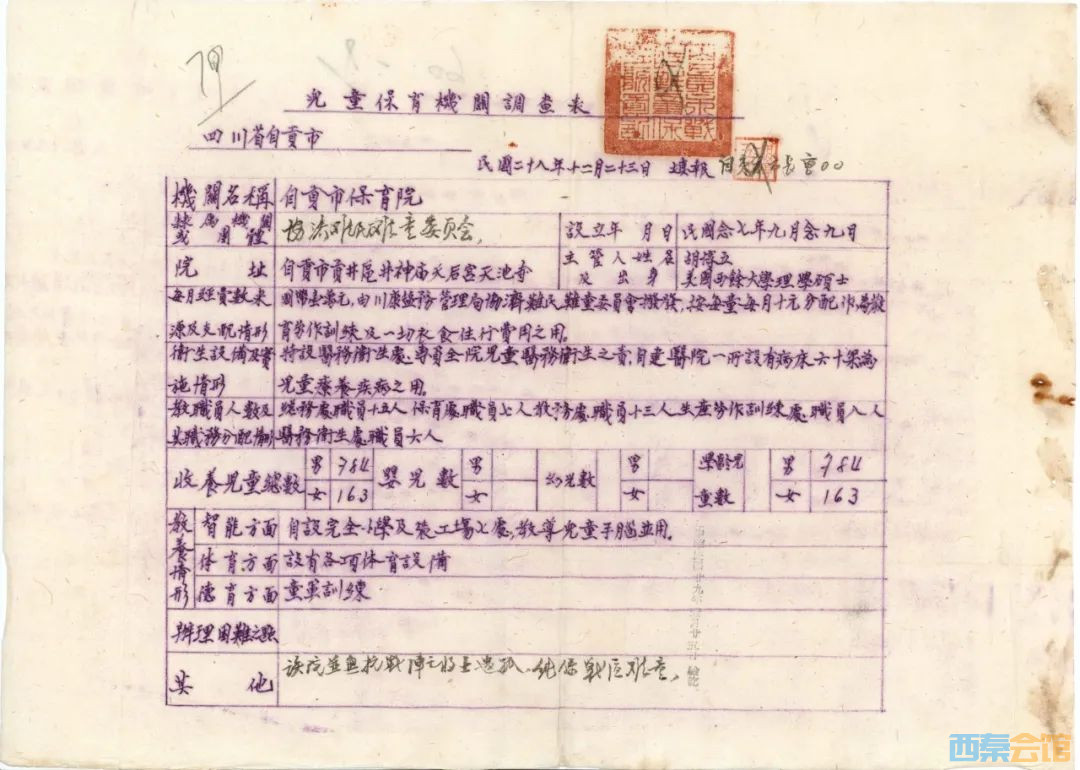 兒童保育機關調查表
四川省自貢市
民國二十八年十二月二十三日 填報 市長曹〇〇
機關名稱 自貢市保育院
隸屬機關或團體 協濟難民難童委員会 設立年月日 民國念七年九月念九日
院址 自貢市貢井區井神庙天后宮天池寺 主管人姓名及出身 胡博五 美國西餘大學理學碩士
每月經費數來源及支配情形 國幣壹萬元,由川康鹽務管理局協濟難民難童委員會撥發,按每童每月十元分配作為教
育勞作訓練及一切衣食住行費用之用。
衛生設備及實施情形 特設醫務衛生處,專負全院兒童醫務衛生之責,自建醫院一所設有病床六十架為
兒童療養疾病之用。
教職員人數及其職務分配情形 總務處職員十五人 保育處職員七人 教務處職員十三人 生產勞作訓練處職員八人
醫務衛生處職員六人
收養兒童總數 男 784 女 163 嬰兒數 男 女 幼兒數 男 女 學齡兒童數 男 784 女 163
教養情形 智能方面 自設完全小學及裝工場七處,教導兒童手腦並用。
体育方面 設有各項体育設備
德育方面 童軍訓練
辦理困難之點
其他 该院並無抗戰陣亡将士遗孤,純係戰区难童。
西秦会馆